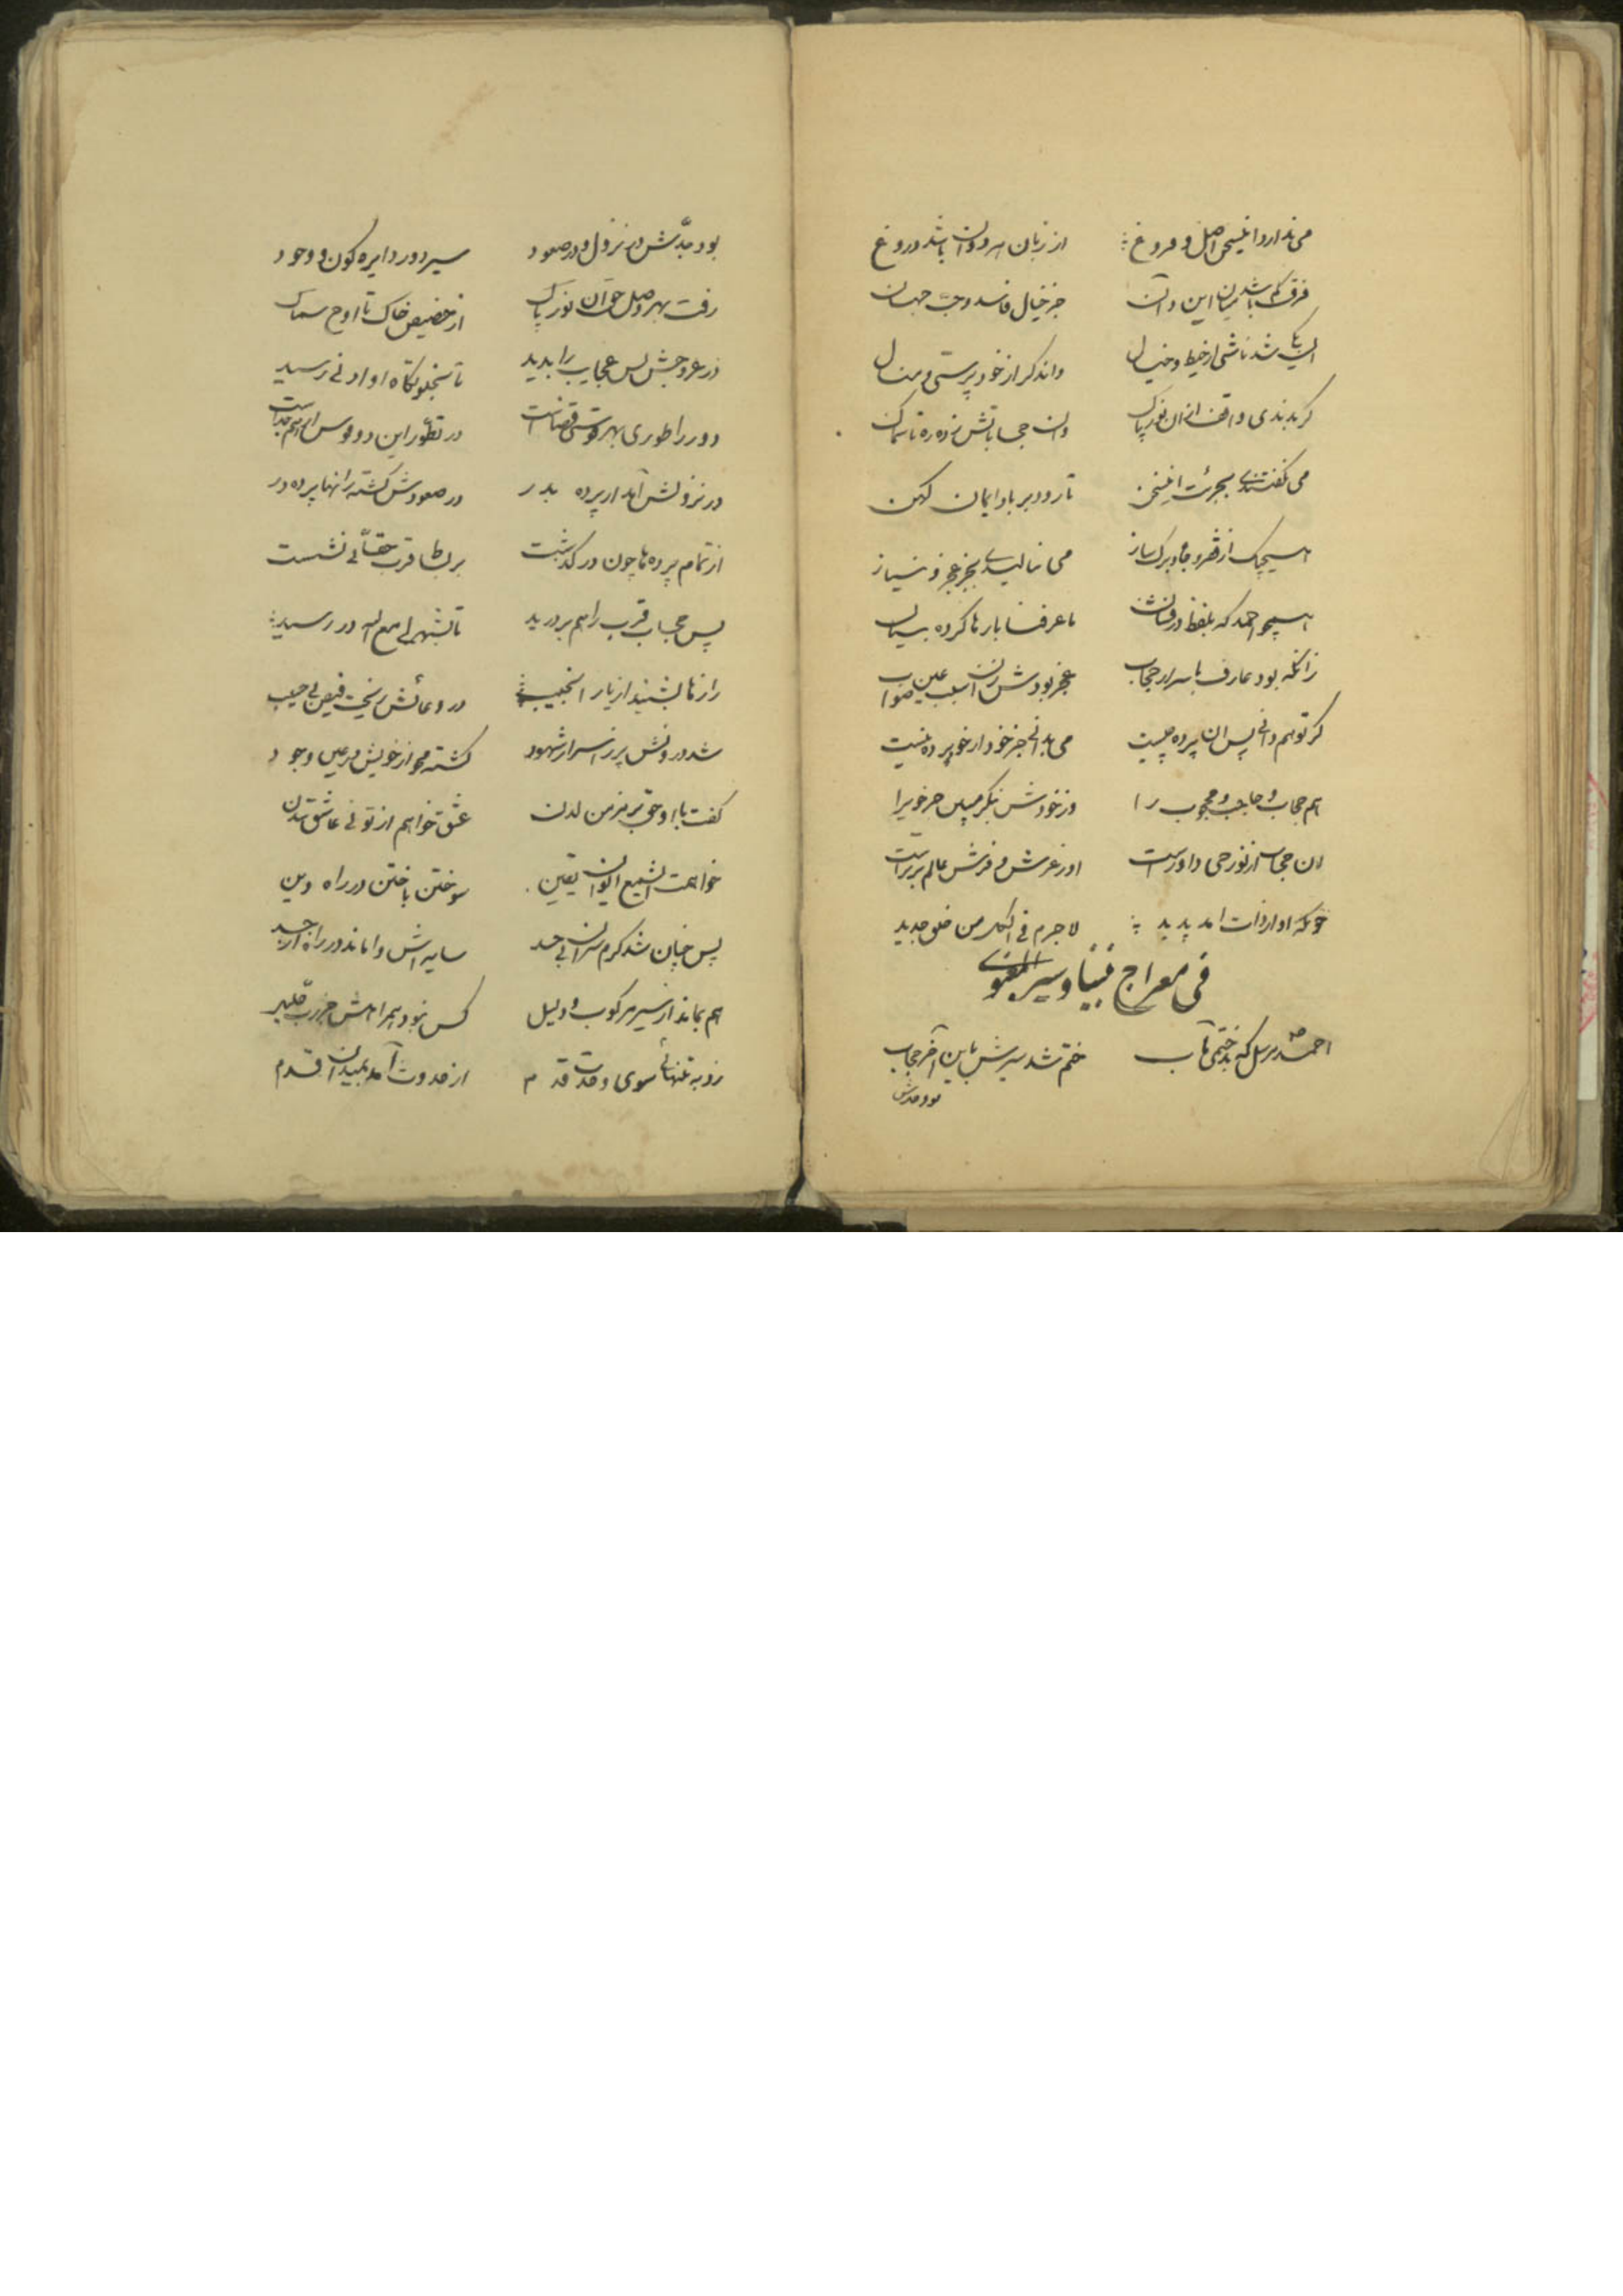 می ندارد اینسخن اصل و فروغ از زبان هر دوان باشد دروغ
فرق کی باشد میان این و آن جز خیال فاسد و حبّ جهان
ان یکی شد ناشی از خبط و خیال واندکر از خودپرستی و منال
کر بدندی واقف از ان نور پاک وان حجاباتش زده ره تا سماک
می نکفتندی بجرئت اینسخن تا رود بر باد ایمان کهن
هیچیک از فقر و جاه و برک و ساز می نبالیدی بجز عجز و نیاز
همچو احمد که بلفظ درفشان ما عرفنا بارها کرده بیان
زانکه بود عارف باسرار حجاب عجز بودش زان سبب عین صواب
کر تو هم دانی پس ان پرده چیست می بدانی جز خود از خود پرده نیست
هم حجاب و حاجب و محجوب را در خودش بنکر مبین جز خویرا
ان حجاب از نور حی داورست او ز عرش و فرش عالم برترست
چونکه او از ذات امد پدید لاجرم فی الکل من خلق جدید
فی معراج نبینا و سیر المعنوی
احمد مرسل که بد ختمی مآب ختم شد سیرش باین آخر حجاب
بود جدش
بود جدّش در نزول و در صعود سیر دور دایره کون و وجود
رفت بهر وصل جوان نور پاک از حضیض خاک تا اوج سماک
در عروجش بس عجایب را بدید تا بخلوتکاه او ادنی رسید
دور را طوری بهر قوسی قضاست در تطور این دو قوس از هم جداست
در نزولش آمد از پرده بدر در صعودش کشته زانها پرده در
از تمام پرده ها چون در کذشت بر بساط قرب حق نشست
پس حجاب قرب را هم بر درید تا بشهر لی مع الله در رسید
رازها بشنید از یار انجیب در وعائش ریخت فیض بی حیب
شد درونش پر ز اسرار شهود کشته محو از خویش در عین وجود
کفت با او حق برمز من لدن عشق خواهم از تو نی عاشق شدن
خواهمت ای شمع ایوان یقین سوختن باختن در راه دین
پس چنان شد کرم سر ان بی حد سایه اش واماند در راه از جسد
هم بماند از سیر مرکوب و دلیل کس نبود همراهش جز رب جلیل
رو به تنهائی سوی وحدت قدم از حدوث آمد بمیدان قدم